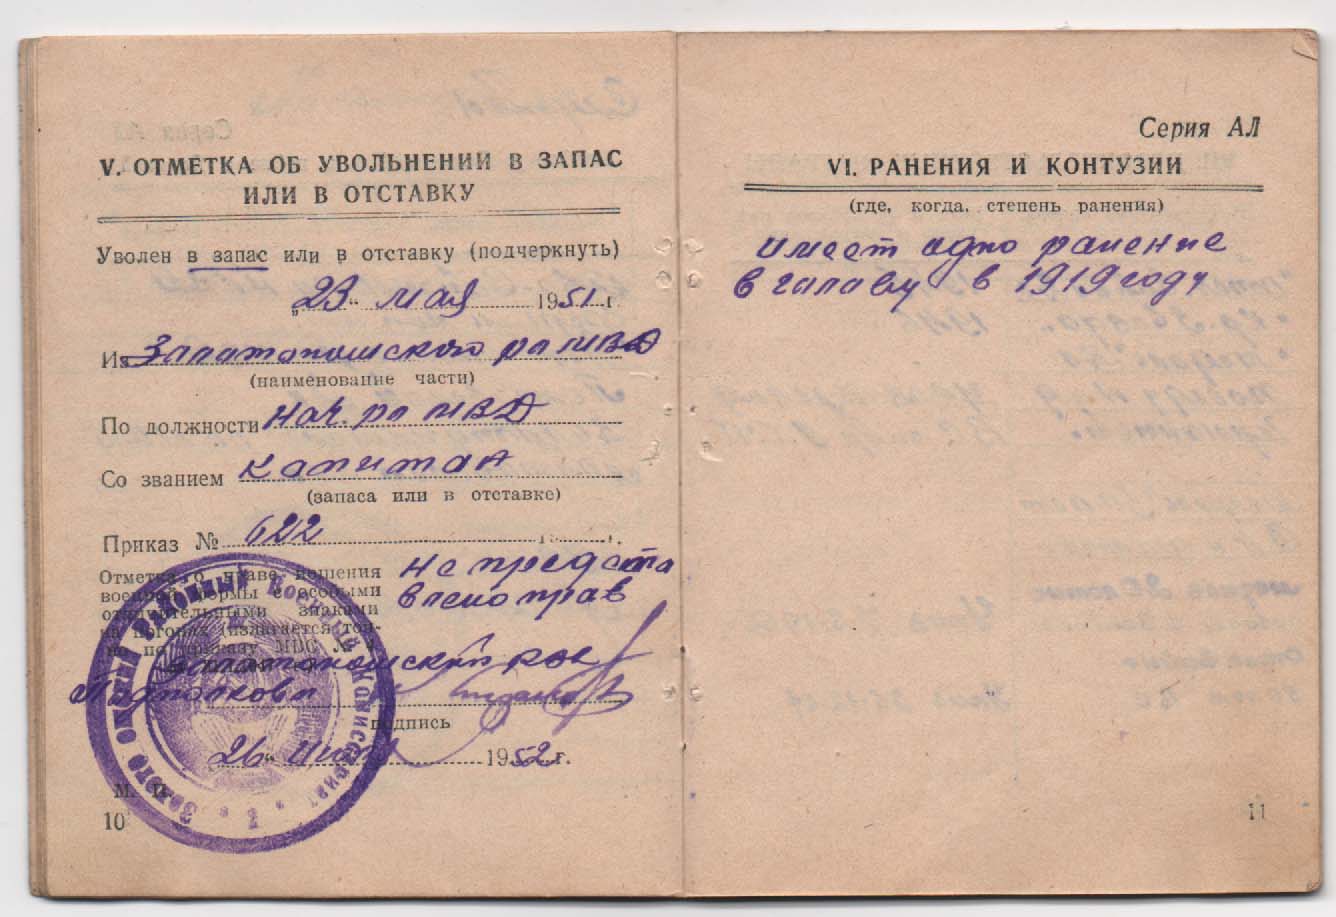 V. ОТМЕТКА ОБ УВОЛЬНЕНИИ В ЗАПАС
ИЛИ В ОТСТАВКУ
Уволен в запас или в отставку (подчеркнуть)
„23“ мая 1951 г
Из Залатопошского ра МВД
(наименование части)
По должности нач. ра МВД
Со званием капитан
(запаса или в отставке)
Приказ № 622 г.
Отметка о праве ношения
военной формы с особыми
отличительными знаками
на погонах (излагается тол-
по приказу МВС
не предста
влено прав
Подполковн
подпись
26 1952 г.
М. П.
10
Серия АЛ
VI. РАНЕНИЯ И КОНТУЗИИ
(где, когда, степень ранения)
имеет одно ранение
в галаву в 1919 году
11
Районный Военный Комиссариат